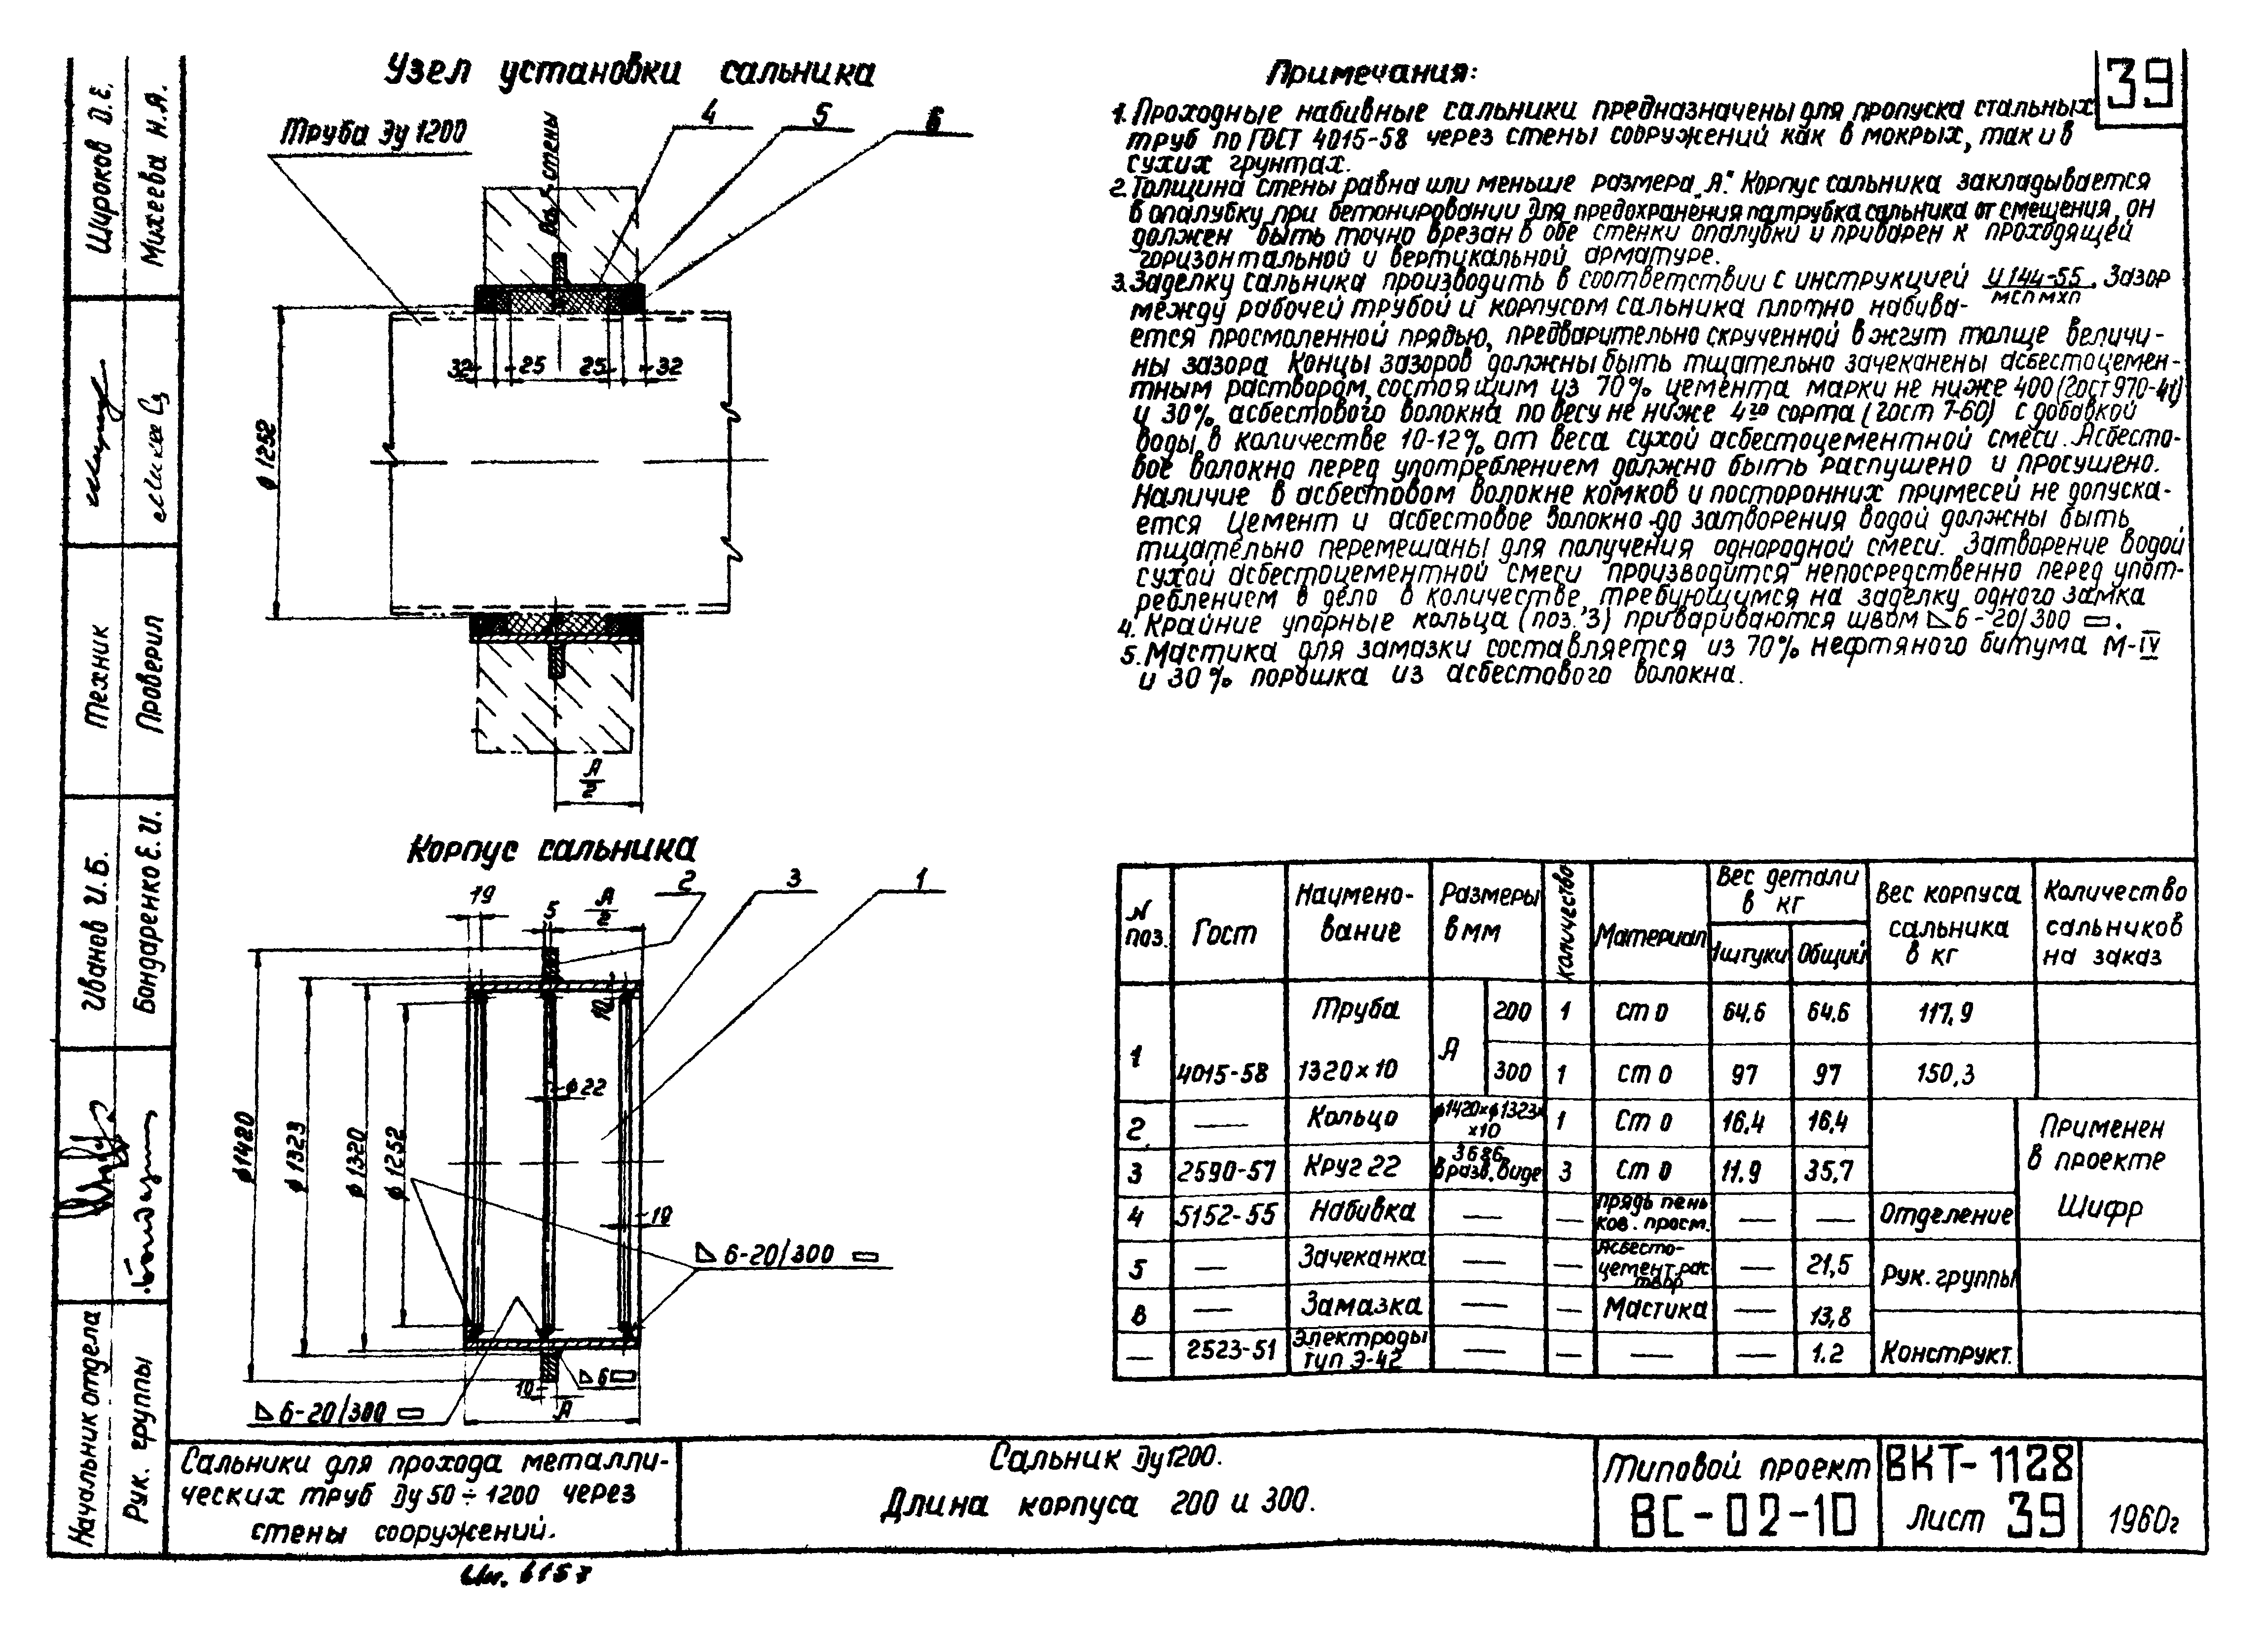 39
Узел установки сальника
Труба Ду 1200
4
5
6
Ось стены
ϕ 1252
32
25
25
32
А/2
Корпус сальника
19
5
А/2
2
3
1
10
ϕ1420
ϕ 1323
ϕ 1320
ϕ 1252
ϕ 22
19
6-20/300
6-20/300
6
10
А
Примечания:
1. Проходные набивные сальники предназначены для пропуска стальных
труб по ГОСТ 4015-58 через стены сооружений как в мокрых, так и в
сухих грунтах.
2. Толщина стены равна или меньше размера „А". Корпус сальника закладывается
в опалубку при бетонировании Для предохранения патрубка сальника от смещения, он
должен быть точно врезан в обе стенки опалубки и приварен к проходящей
горизонтальной и вертикальной арматуре.
3. Заделку сальника производить в соответствии с инструкцией И 144-55 / МСПМХП. Зазор
между рабочей трубой и корпусом сальника плотно набива-
ется просмоленной прядью, предварительно скрученной в жгут толще величи-
ны зазора Концы зазоров должны быть тщательно зачеканены асбестоцемен-
тным раствором, состоящим из 70% цемента марки не ниже 400 (гост 970-41)
и 30% асбестового волокна по весу не ниже 4го сорта (гост 7-60) с добавкой
воды в количестве 10-12% от веса сухой асбестоцементной смеси. Асбесто-
вое волокно перед употреблением должно быть распушено и просушено.
Наличие в асбестовом волокне комков и посторонних примесей не допуска-
ется Цемент и асбестовое волокно до затворения водой должны быть
тщательно перемешаны для получения однородной смеси. Затворение водой
сухой асбестоцементной смеси производится непосредственно перед упот-
реблением в дело в количестве, требующимся на заделку одного замка
4. Крайние упорные кольца (поз. 3) привариваются швом 6-20/300.
5. Мастика для замазки составляется из 70% нефтяного битума М-IV
и 30% порошка из асбестового волокна.
N поз. Гост Наименование Размеры в мм Количество Материал Вес детали в кг Вес корпуса сальника в кг Количество сальников на заказ
1 штуки Общий
1 4015-58 Труба 1320×10 А 200 1 ст 0 64.6 64.6 117.9
300 1 ст 0 97 97 150,3
2 — Кольцо ϕ1420×ϕ1323××10 1 Ст 0 16.4 16.4
3 2590-57 Круг 22 3686 в разв. виде 3 Ст 0 11.9 35,7
4 5152-55 Набивка — — прядь пеньков. просм. — — Отделение
5 — Зачеканка — — Асбестоцемент.раствор — 21,5 Рук. группы
6 — Замазка — — Мастика — 13,8
— 2523-51 Электроды тип Э-42 — — — — 1.2 Конструкт.
Применен
в проекте
Шифр
Широков О.Е.
Михеева Н.А.
Техник
Проверил
Иванов И.Б.
Бондаренко Е.И.
Начальник отдела
Рук. группы
Сальники для прохода металли-
ческих труб Ду 50÷1200 через
стены сооружений.
Сальник Ду1200.
Длина корпуса 200 и 300.
Типовой проект
ВС-02-10
ВКТ-1128
Лист 39
1960г